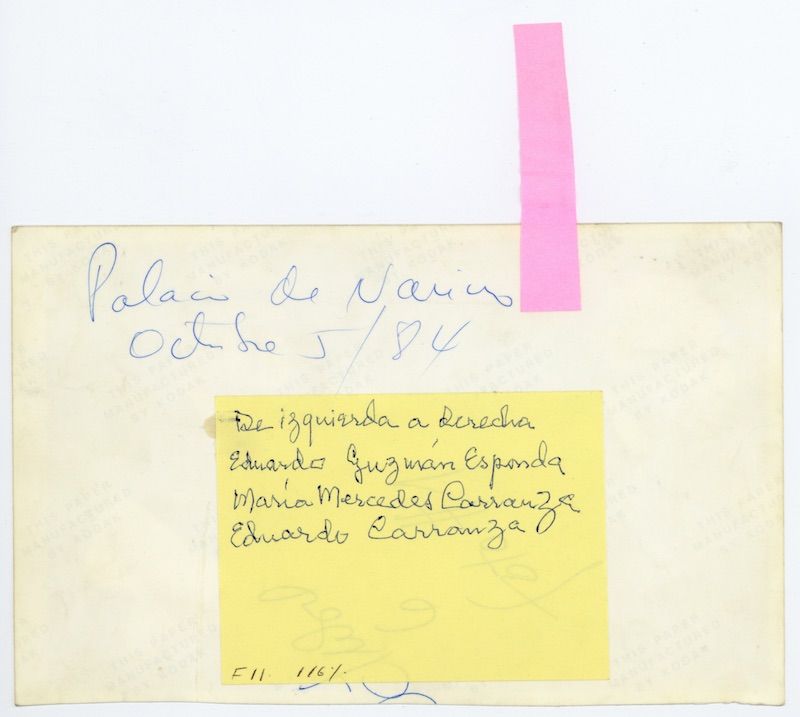 Palacio de Nariño
Octubre 5/84
De izquierda a derecha
Eduardo Guzmán Esponda
María Mercedes Carranza
Eduardo Carranza
F11. 116%
THIS PAPER
MANUFACTURED
BY KODAK